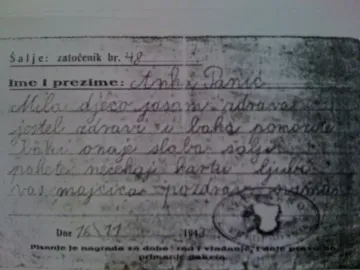 Šalje: zatočenik br. 48
Ime i prezime: Anka Panić
Mila djeco ja sam zdrava
jeste l zdravi i baka pomozite
baki ona je slaba šaljite
pakete nečekaj kartu ljubi
vas majčica pozdrav svima
Dne 16\11 194
Pisanje je nagrada za dobar rad i vladanje, i daje pravo na
primanje paketa.